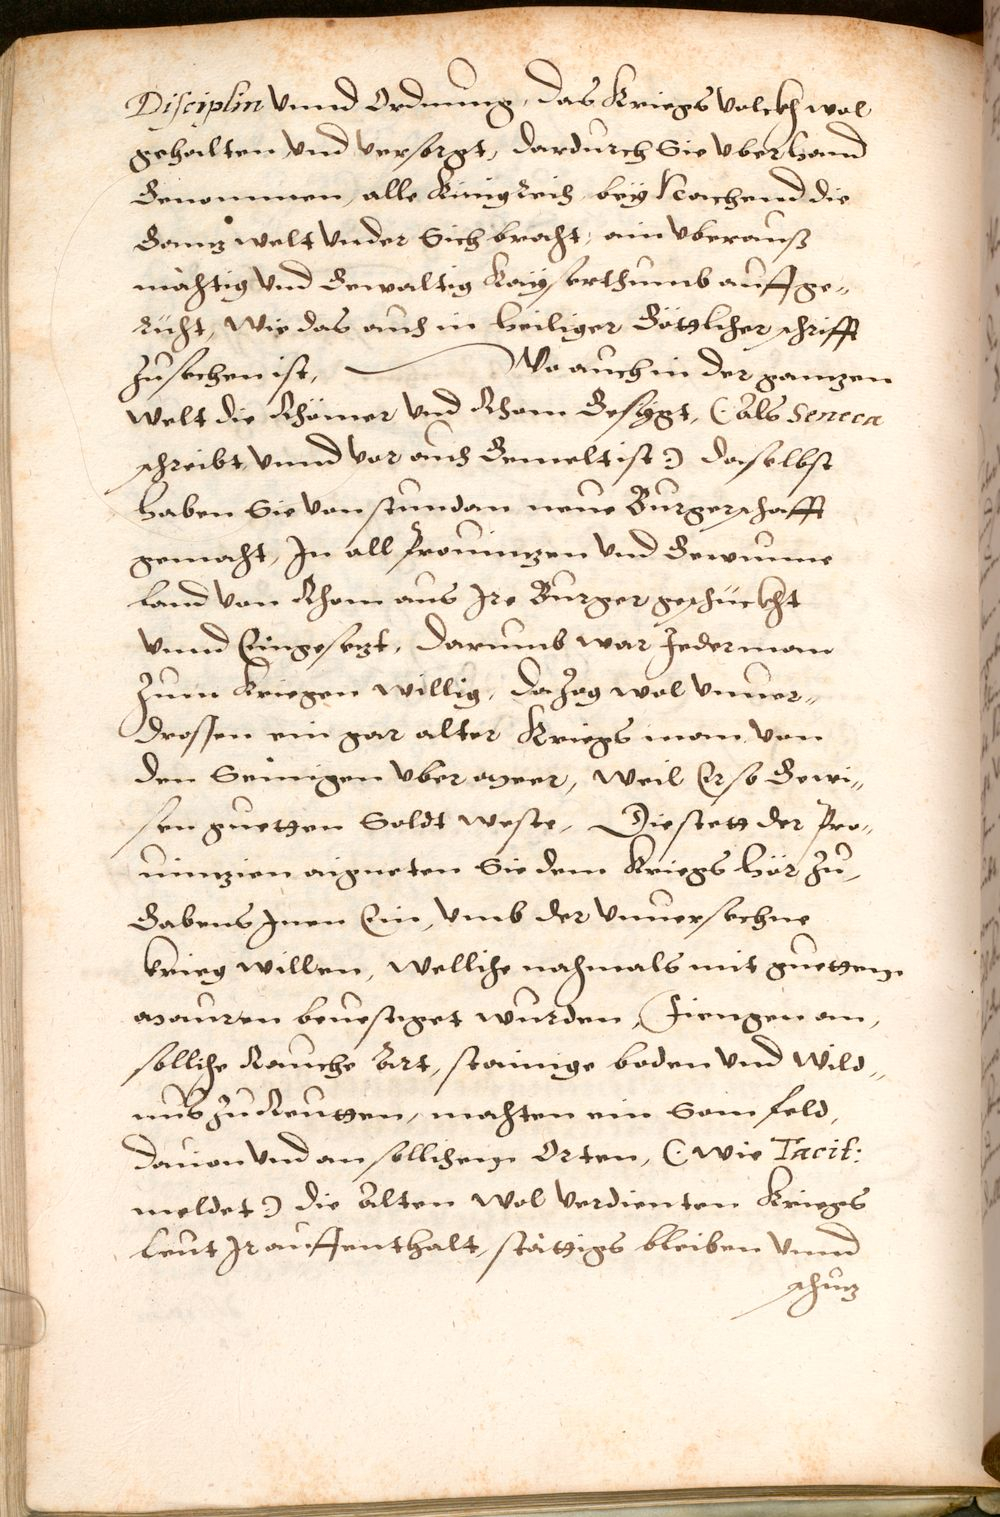 Disciplin vnnd Ordnung, das Kriegs volckh wol
gehalten vnd versorgt, dardurch Sie vberhand
Genommen, alle Künigreich, bey Nachend die
Gantz welt vnder Sich bracht, ain vberauß
mächtig vnd Gewaltig Kayserthumb auffge„
richt, Wie das auch in heiliger Göttlicher schrifft
zusechen ist, Wo auch in der gantzen
welt die Rhömer vnd Rhom Gesigt, (: als Seneca
schreibt vnnd vor auch Gemelt ist :) daselbst
haben Sie von stundan neue Burgerschafft
gemacht, In all Prouintzen vnd Gewunne
land von Rhom aus Ire Burger geschückht
vnnd Eingesetzt, darumb war Jederman
zum Kriegen willig, da zog wol vnuer„
drossen ein gar alter Kriegs man von
den Seinigen vber Meer, weil Er so Gewi„
sen guetten Soldt weste, Die stett der Pro„
uintzien aigneten Sie dem Kriegs hör zu,
Gabens Inen Ein, vmb der vnuersechne
krieg willen, welliche nachmals mit guettem
Mauren beuestiget wurden, Fiengen an,
solliche Rauche Ärt, stainige boden vnd Wild„
nus zu Reutten, machten ein Sam feld,
dauon vnd an sollichem Orten, (: wie Tacit:
meldet :) die Alten wol verdienten Kriegs
leut Ir auffenthalt, stättigs bleiben vnnd
schutz